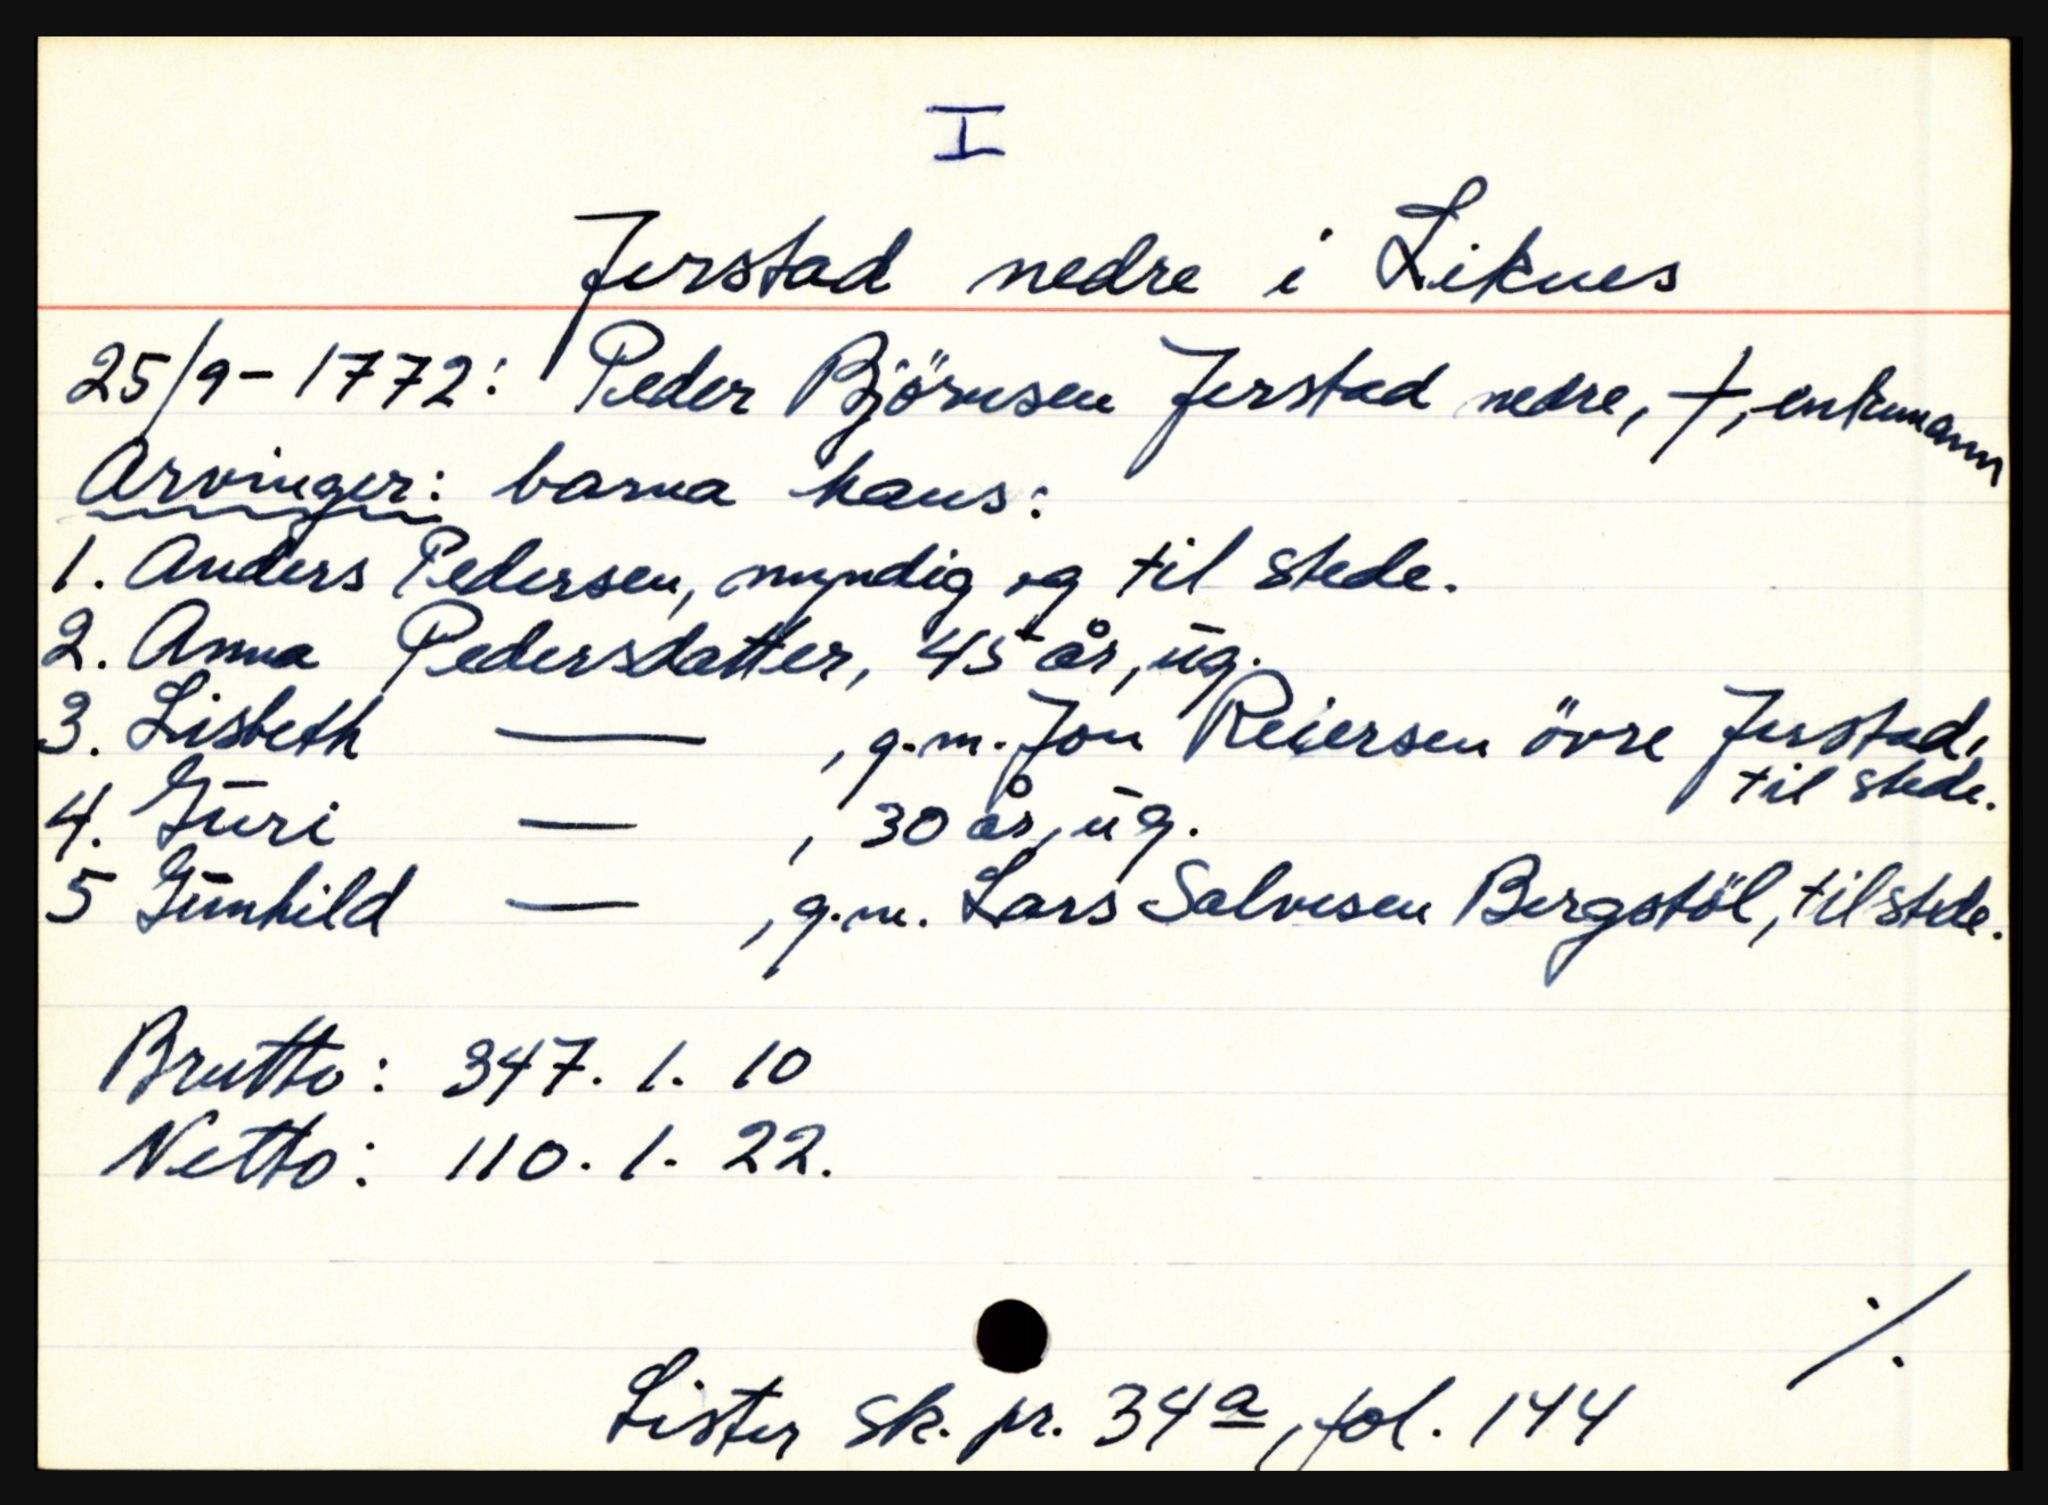 I
Jerstad nedre i Liknes
25/9-1772: Peder Björnsen Jerstad nedre, †, enkemann
Arvinger: barna hans:
1. Anders Pedersen, myndig og til stede.
2. Anna Pedersdatter, 45 år, ug.
3. Lisbeth — , g.m. Jon Reiersen övre Jerstad, til stede.
4. Guri — , 30 år, ug.
5 Gunhild — , g.m. Lars Salvesen Bergstöl, til stede.
Brutto: 347. 1. 10
Netto: 110. 1. 22.
./.
Lister sk. pr. 34a, fol. 144